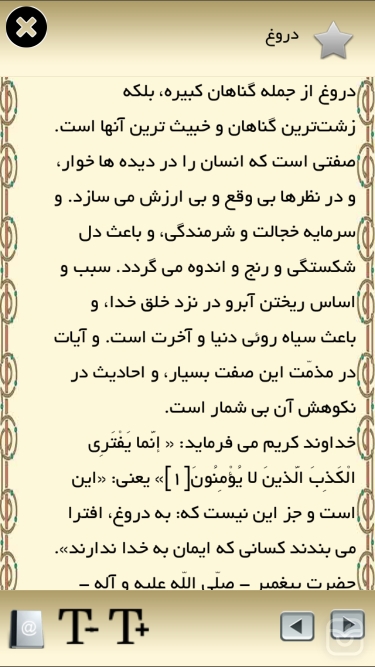 دروغ
دروغ از جمله گناهان کبیره، بلکه
زشت‌ترین گناهان و خبیث ترین آنها است.
صفتی است که انسان را در دیده ها خوار،
و در نظرها بی وقع و بی ارزش می سازد. و
سرمایه خجالت و شرمندگی، و باعث دل
شکستگی و رنج و اندوه می گردد. سبب و
اساس ریختن آبرو در نزد خلق خدا، و
باعث سیاه روئی دنیا و آخرت است. و آیات
در مذمّت این صفت بسیار، و احادیث در
نکوهش آن بی شمار است.
خداوند کریم می فرماید: « إنّما یَفْتَرِی
الْکَذِبَ الَّذینَ لا یُؤْمِنُونَ[۱]» یعنی: «این
است و جز این نیست که: به دروغ، افترا
می بندند کسانی که ایمان به خدا ندارند».
حضرت پیغمبر – صلّی اللّه علیه و آله –
@ T- T+